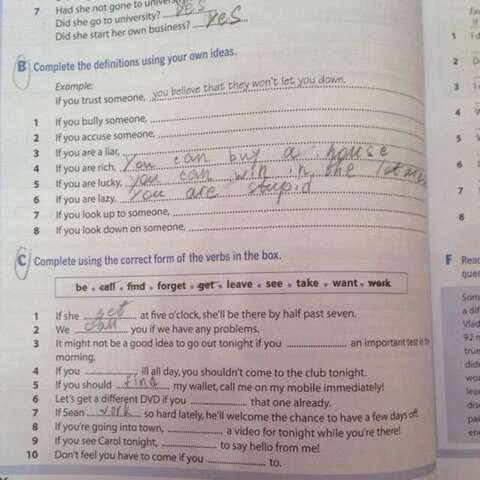 7 Had she not gone to university? yes
Did she go to university? yes
Did she start her own business?
B Complete the definitions using your own ideas.
Example:
If you trust someone, you believe that they won't let you down.
1 If you bully someone,
2 If you accuse someone,
3 If you are a liar,
4 If you are rich, You can buy a house
5 If you are lucky, you can win in the
6 If you are lazy, You are stupid
7 If you look up to someone,
8 If you look down on someone,
C Complete using the correct form of the verbs in the box.
be • call • find • forget • get • leave • see • take • want • work
1 If she get at five o'clock, she'll be there by half past seven.
2 We call you if we have any problems.
3 It might not be a good idea to go out tonight if you an important test in the
morning.
4 If you ill all day, you shouldn't come to the club tonight.
5 If you should find my wallet, call me on my mobile immediately!
6 Let's get a different DVD if you that one already.
7 If Sean work so hard lately, he'll welcome the chance to have a few days off.
8 If you're going into town, a video for tonight while you're there!
9 If you see Carol tonight, to say hello from me!
10 Don't feel you have to come if you to.
1
2
3
4
5
6
7
8
F Read
ques
Som
a dif
Vlad
92 n
true